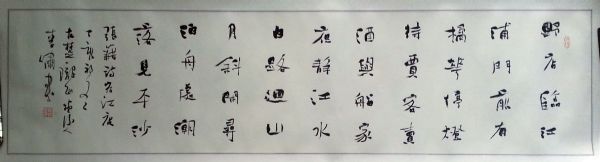 野店臨江
浦門前有
橘華停燈
待賈客賣
酒與船家
夜靜江水
白路迴山
月斜閒尋
泊舟處潮
落見平沙
張籍詩宿江店
丁亥
古楚
書